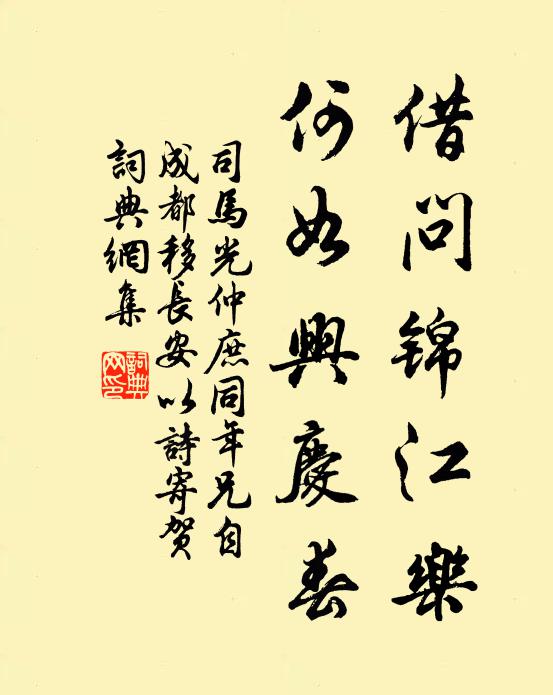 借问锦江樂
何如興慶春
司馬光仲庶同年兄自
成都移長安以詩寄賀
詞典網集
詞典
网印